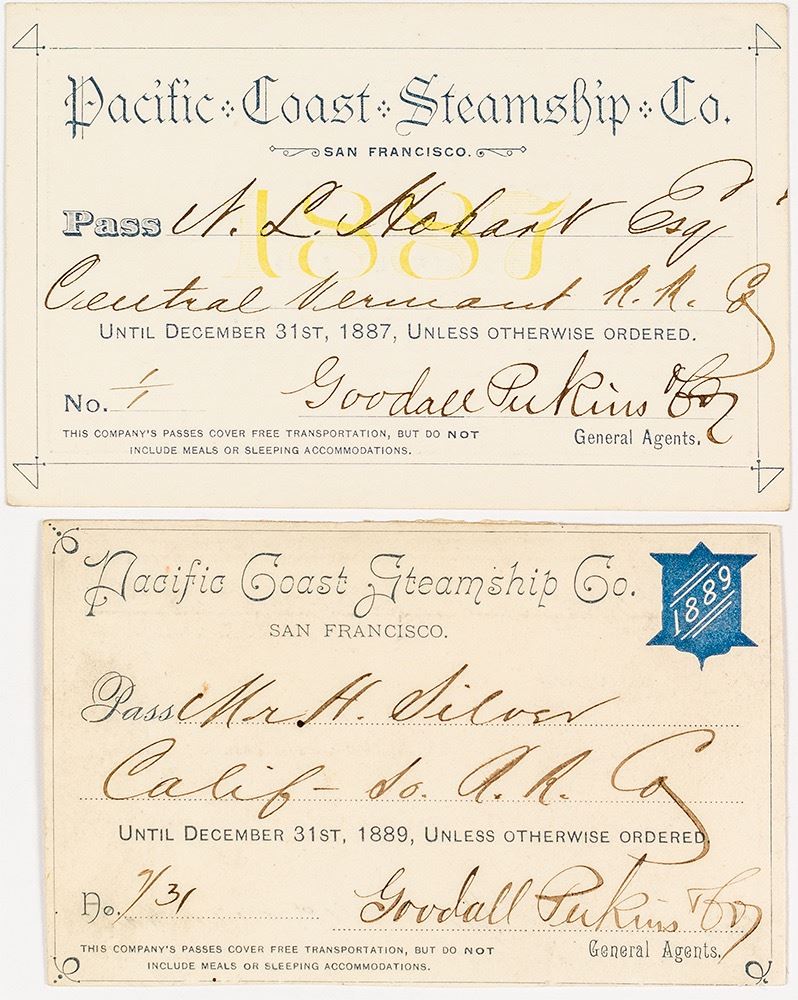 Pacific Coast Steamship Co.
SAN FRANCISCO.
1887
Pass N. L. Hobart Esq
Central Vermont R. R. Co
UNTIL DECEMBER 31ST, 1887, UNLESS OTHERWISE ORDERED.
No. 1/1 Goodall Perkins & Co
THIS COMPANY'S PASSES COVER FREE TRANSPORTATION, BUT DO NOT General Agents.
INCLUDE MEALS OR SLEEPING ACCOMMODATIONS.
Pacific Coast Steamship Co.
1889
SAN FRANCISCO.
Pass Mr H. Silver
Calif - So. R. R. Co
UNTIL DECEMBER 31ST, 1889, UNLESS OTHERWISE ORDERED.
No. /31 Goodall Perkins & Co
THIS COMPANY'S PASSES COVER FREE TRANSPORTATION, BUT DO NOT General Agents.
INCLUDE MEALS OR SLEEPING ACCOMMODATIONS.